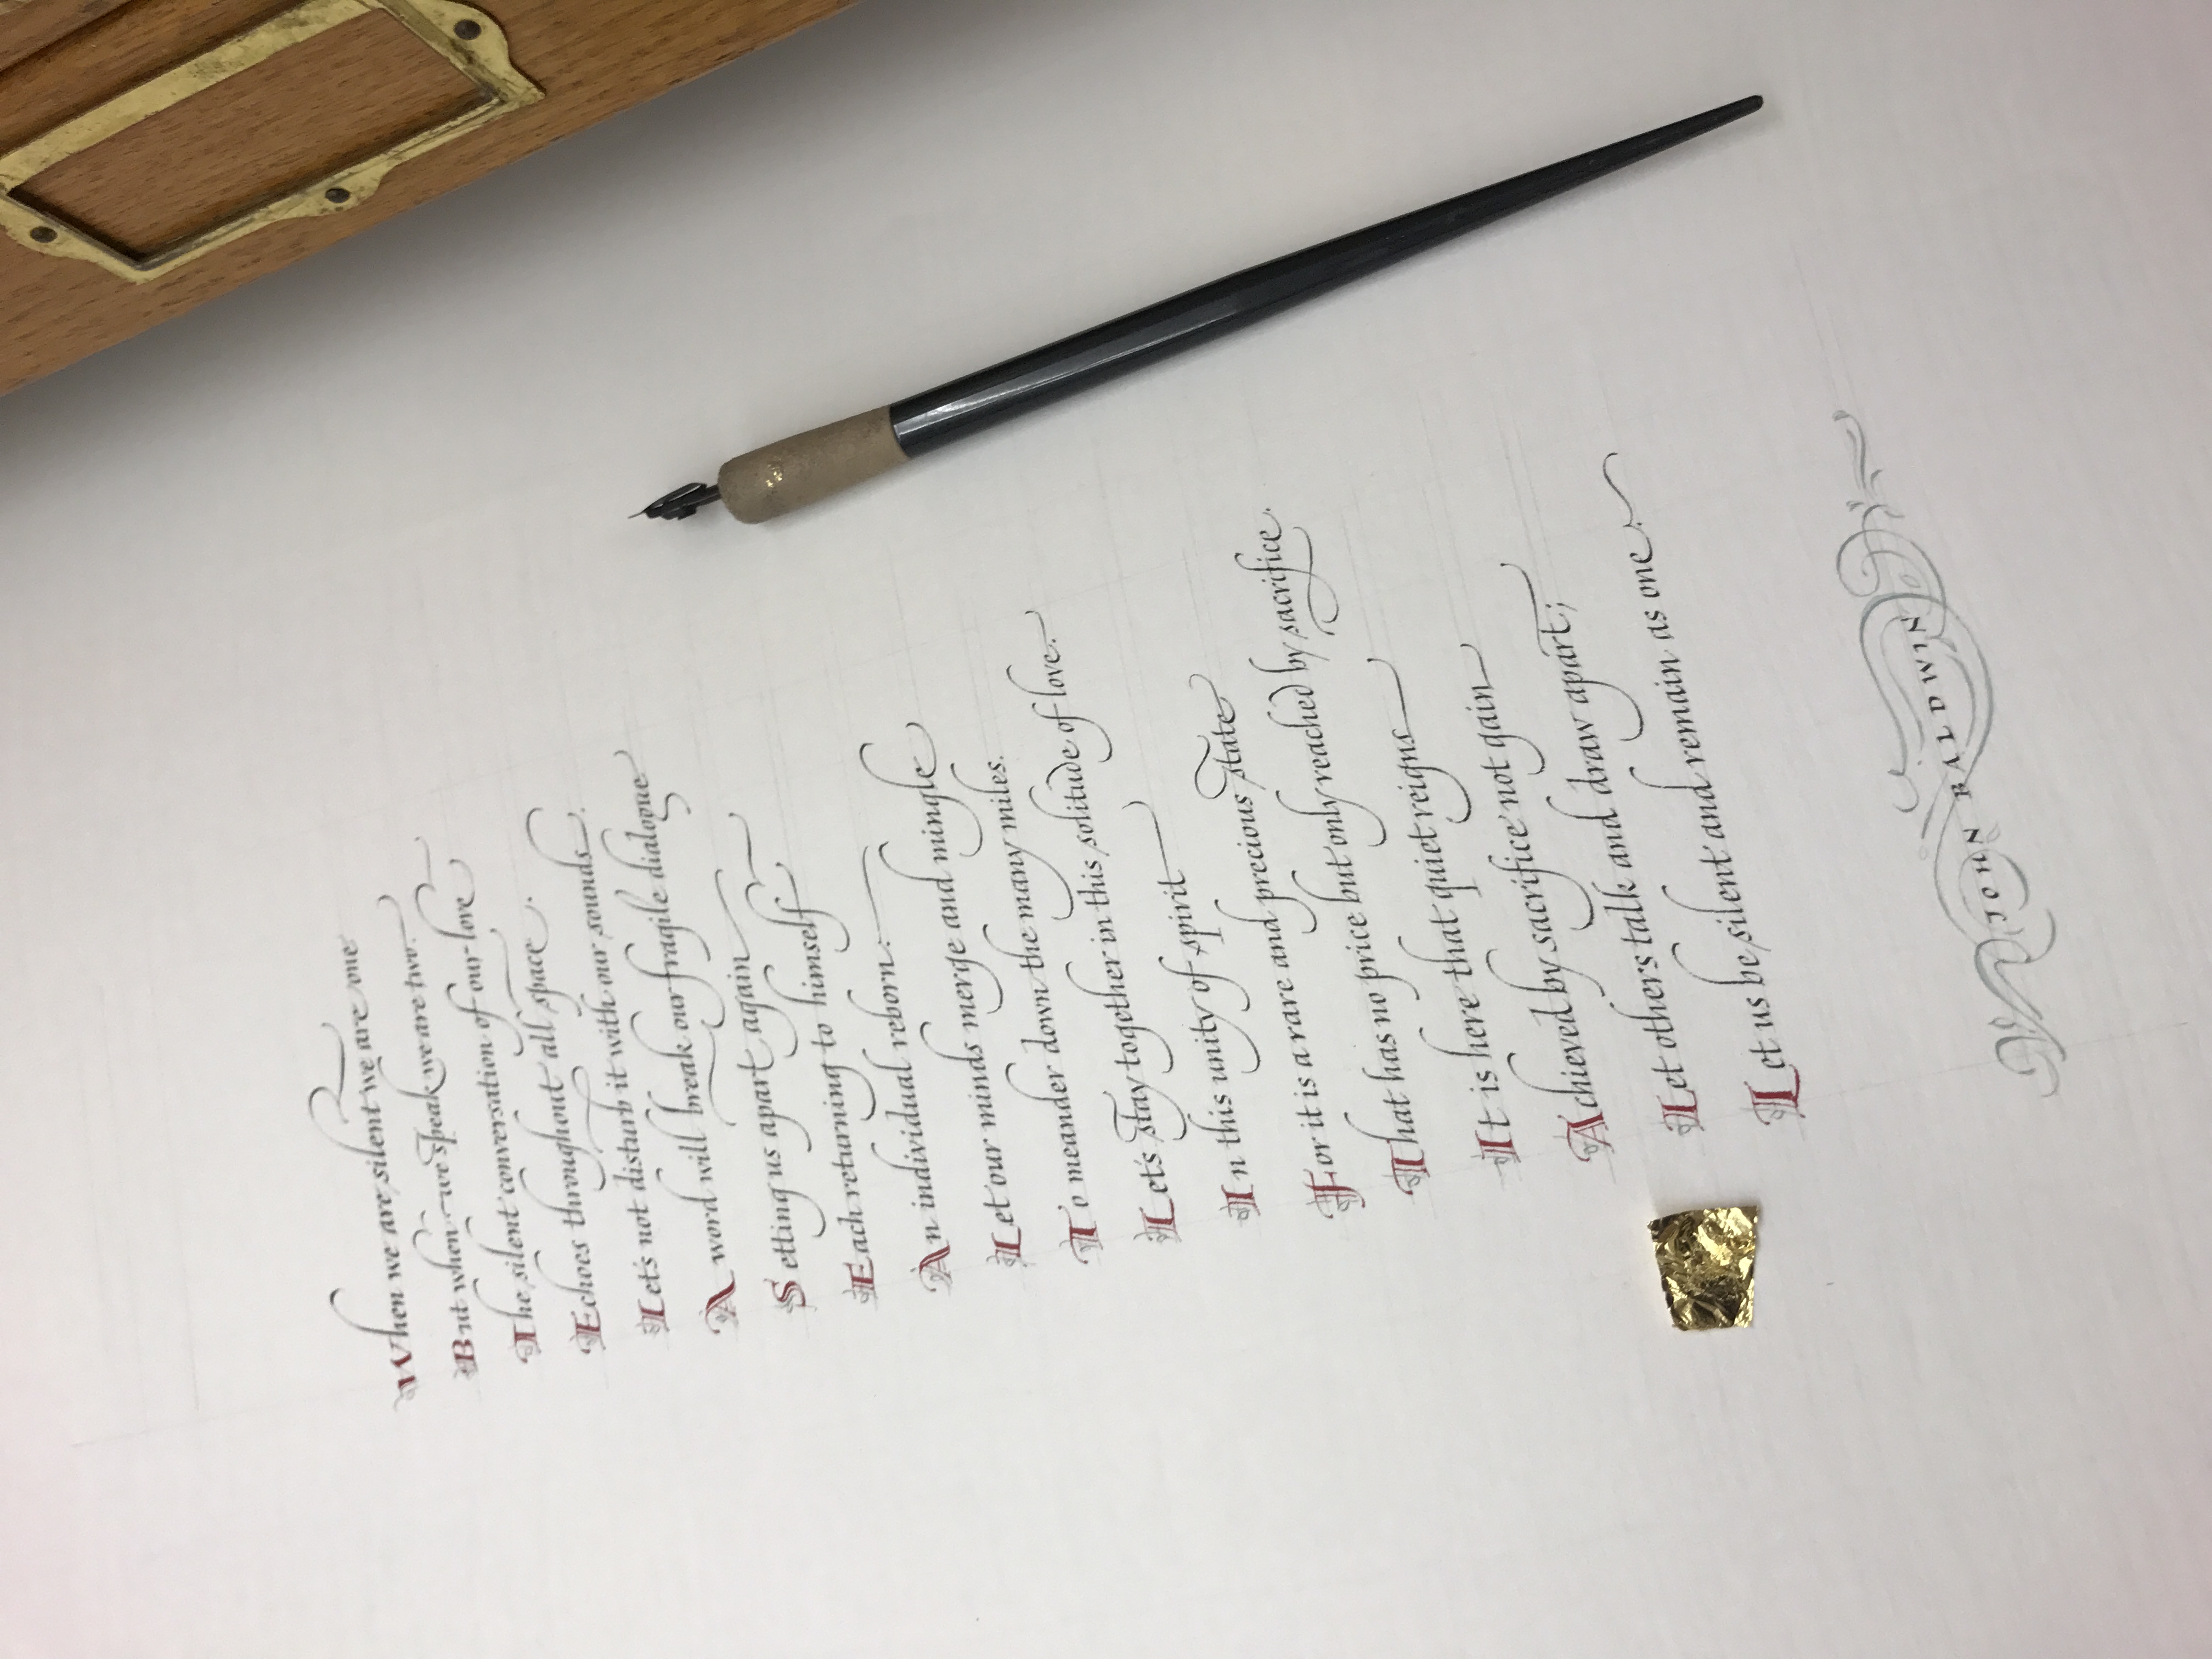 When we are silent we are one
But when we speak we are two.
The silent conversation of our love
Echoes throughout all space.
Let's not disturb it with our sounds.
A word will break our fragile dialogue
Setting us apart again
Each returning to himself
An individual reborn.
Let our minds merge and mingle
To meander down the many miles.
Let's stay together in this solitude of love.
In this unity of spirit
For it is a rare and precious state
That has no price but only reached by sacrifice.
It is here that quiet reigns
Achieved by sacrifice not gain
Let others talk and draw apart;
Let us be silent and remain as one.
JOHN BALDWIN